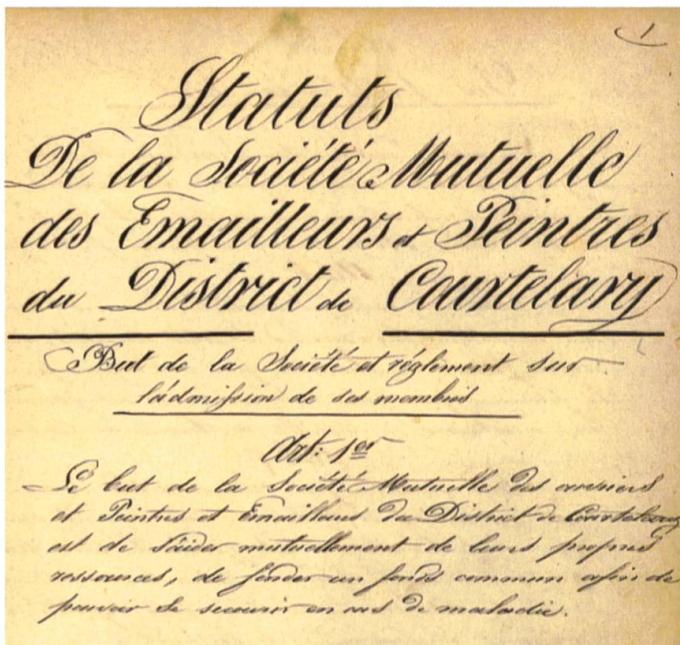 1
Statuts
De la Société Mutuelle
des Emailleurs et Peintres
du District de Courtelary
But de la Société et réglement sur
l'admission de ses membres
Art: 1er
Le but de la Société Mutuelle des ouvriers
et Peintres et Emailleurs du District de Courtelary
est de s'aider mutuellement de leurs propres
ressources, de fonder un fonds commun afin de
pouvoir se secourir en cas de maladie.